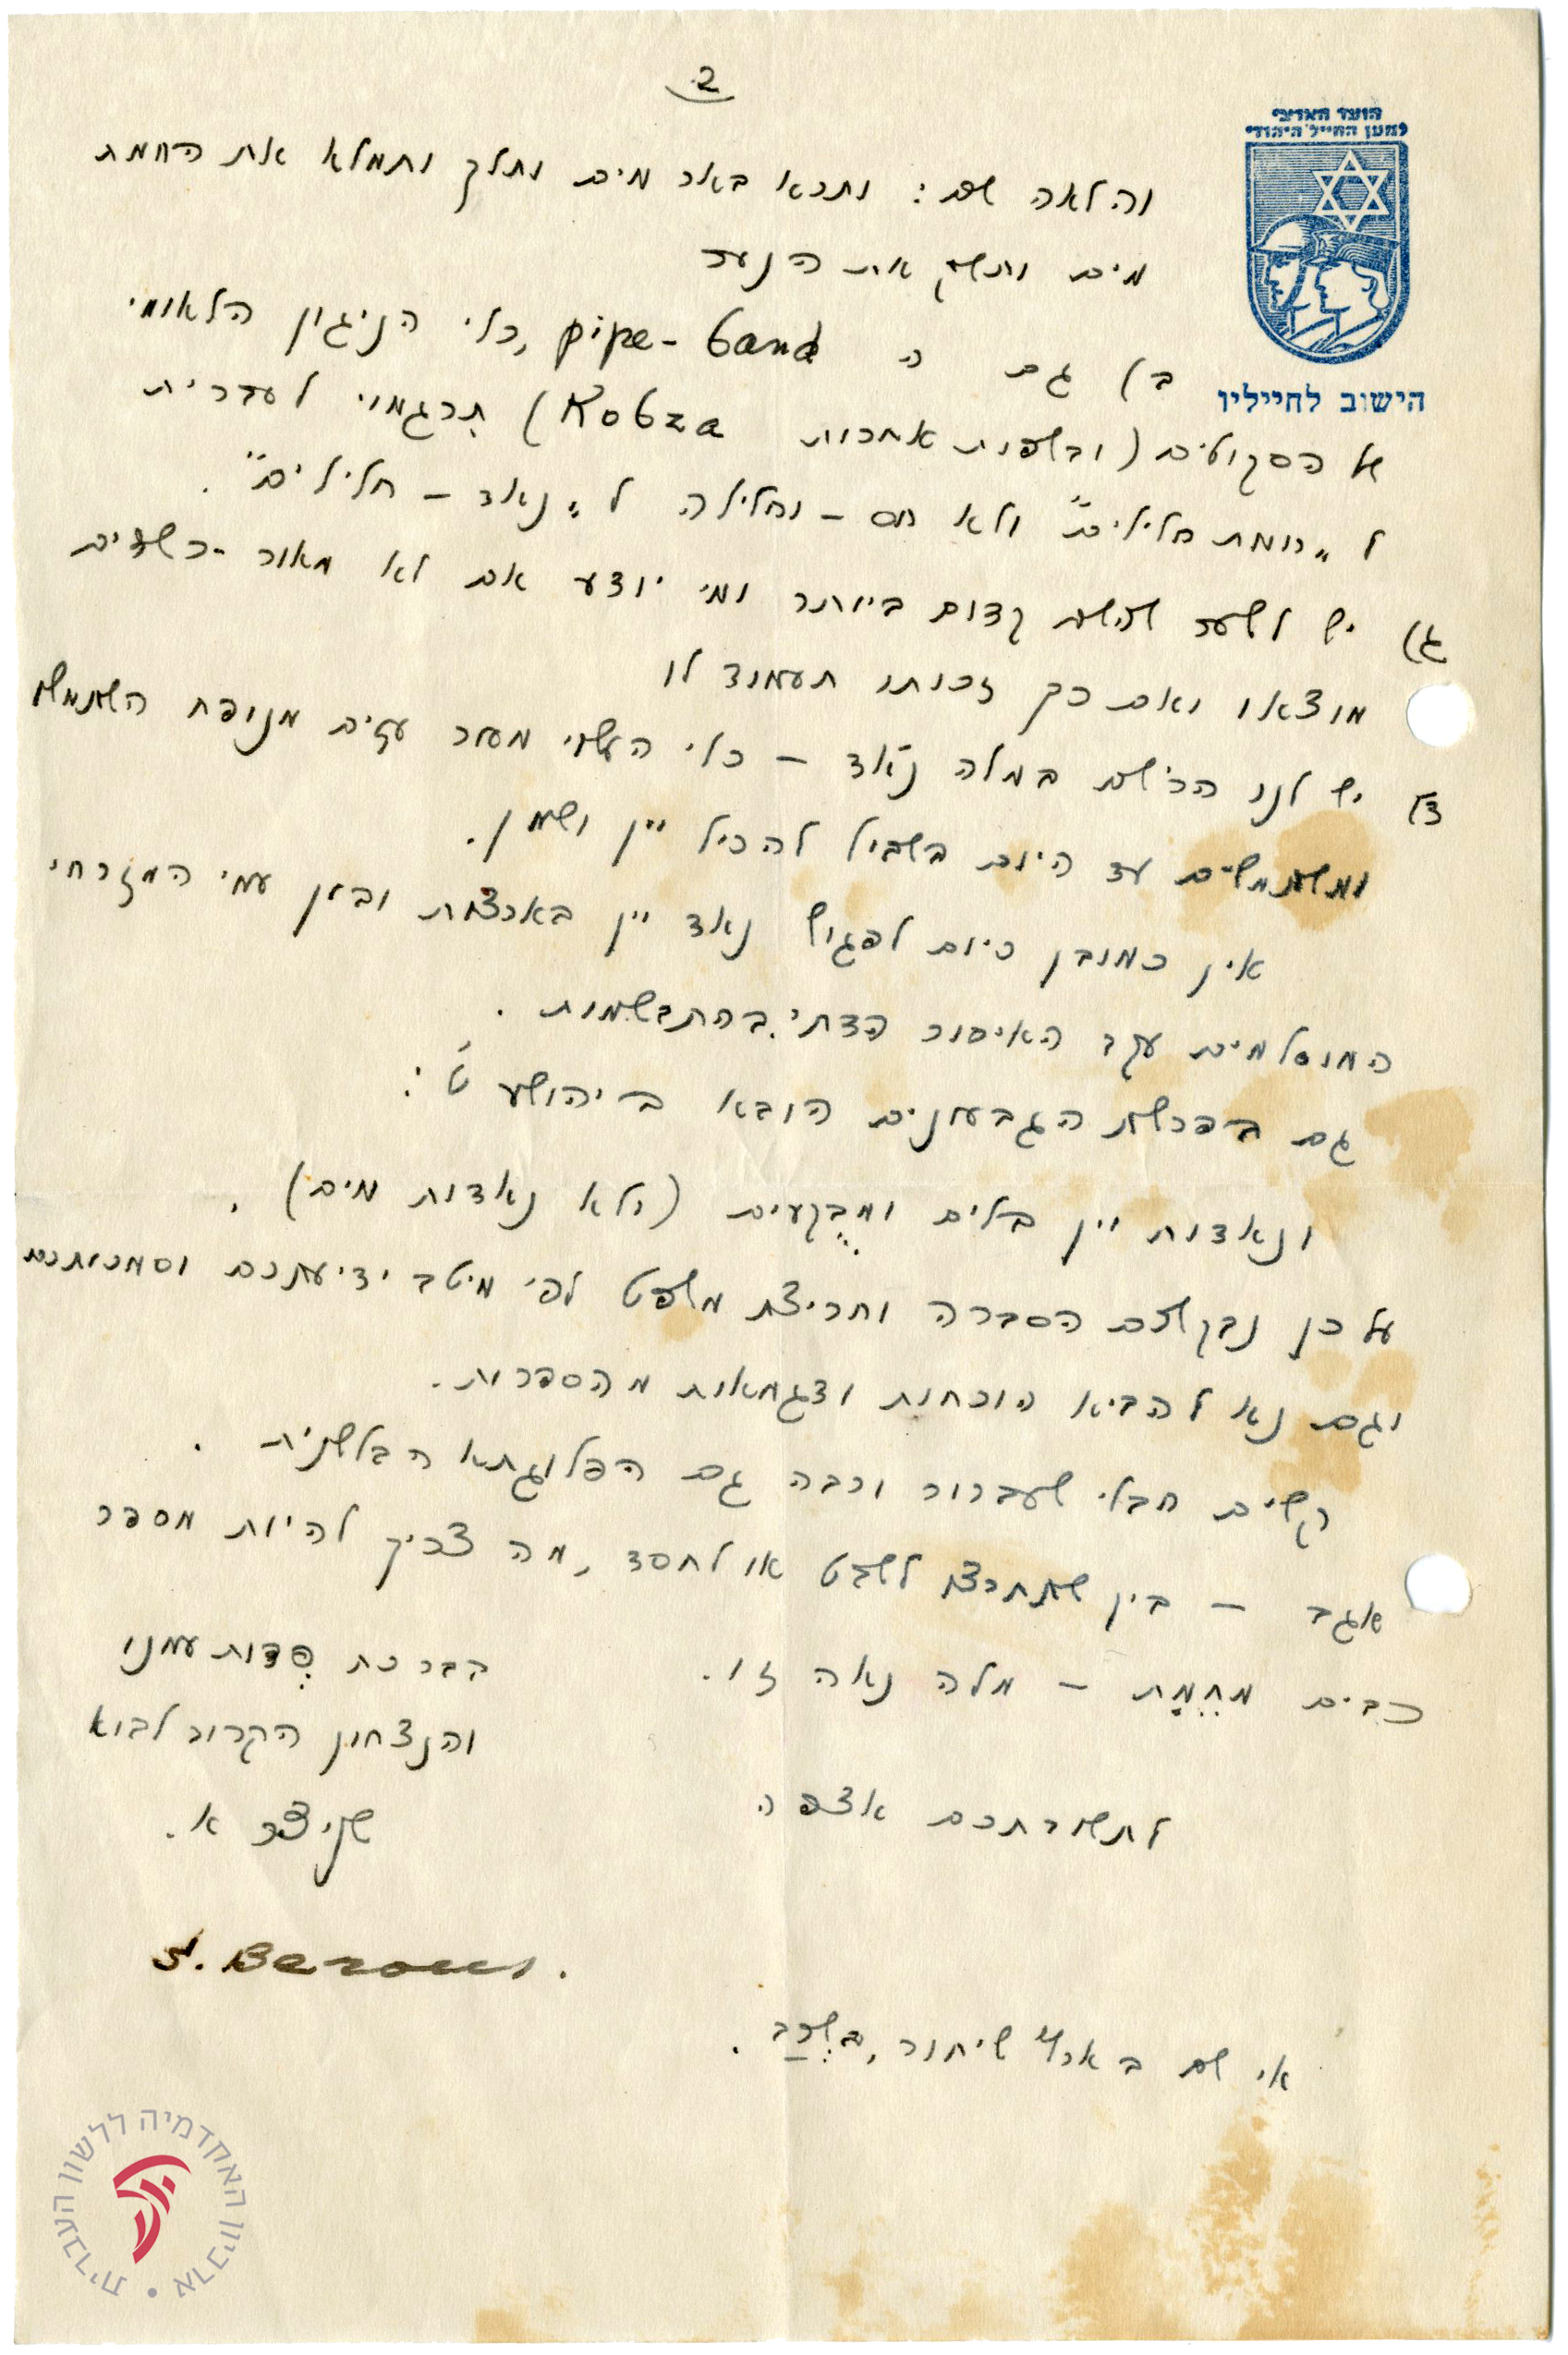 2
הועד הארצי
למען החייל היהודי
הישוב לחייליו
והלאה שם: ותרא באר מים ותלך ותמלא את החמת
מים ותשק את הנער
ב) גם ה pipe-band, כלי הניגון הלאומי
של הסקוטים (ובשפות אחרות Kobza) תרגמוי לעברית
ל„חמת חלילים" ולא חס – וחלילה ל„נאד – חלילים".
ג) יש לשער שהשם קדום ביותר ומי יודע אם לא מאור-כשדים
מוצאו ואם כך זכותו תעמוד לו
ד) יש לנו הרֹשם במלה נאד – כלי העשוי מעור עזים מנופח השתמשו
ומשתמשים עד היום בשביל להכיל יין ושמן.
אין כמובן כיום לפגוש נאד יין בארצות ובין עמי המזרח
המוסלמים עקב האיסור הדתי בהתבשמות.
גם בפרשת הגבעונים הובא ביהושע ט':
ונאדות יין בלים ומְבֻקעים (ולא נאדות מים).
על כן נבקשכם הסברה וחריצת משפט לפי מיטב ידיעתכם וסמכותכם
וגם נא להביא הוכחות ודגמאות מהספרות.
קשים חבלי שעברור ורבה גם הפלוגתא הבלשנית.
אגב – בין שתחרצו לשבט או לחסד, מה צריך להיות מספר
רבים מחֵמֶת – מלה נאה זו.
בברכת פְּדות עמנו
והנצחון הקרוב לבוא
לתשובתכם אצפה
שניצר א.
S.
אי שם בארץ שיחור, בְּשָׁרָב.
ארכיון האקדמיה ללשון העברית